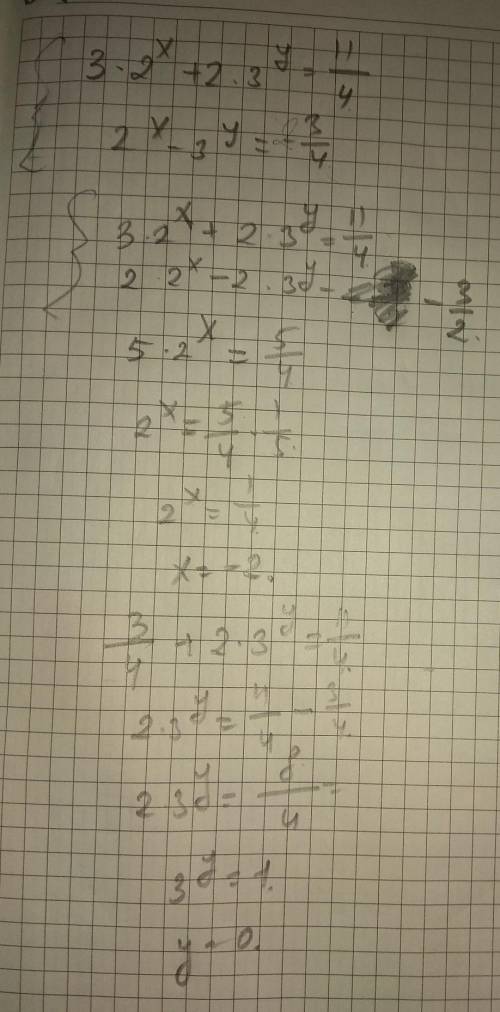 3·2^x + 2·3^y = 11/4
2^x - 3^y = -3/4
3·2^x + 2·3^y = 11/4
2·2^x - 2·3^y - - 3/2.
5·2^x = 5/4
2^x = 5/4 · 1/5
2^x = 1/4
x = -2.
3/4 + 2·3^y = 11/4.
2·3^y = 11/4 - 3/4.
2 3^y = 8/4 =
3^y = 1.
y - 0.